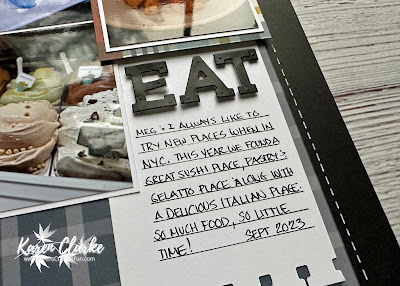 EAT
MEG & I ALWAYS LIKE TO
TRY NEW PLACES WHEN IN
NYC. THIS YEAR WE FOUND A
GREAT SUSHI PLACE, PASTRY &
GELATTO PLACE ALONG WITH
A DELICIOUS ITALIAN PLACE.
SO MUCH FOOD, SO LITTLE
TIME! SEPT 2023
Karen Clarke